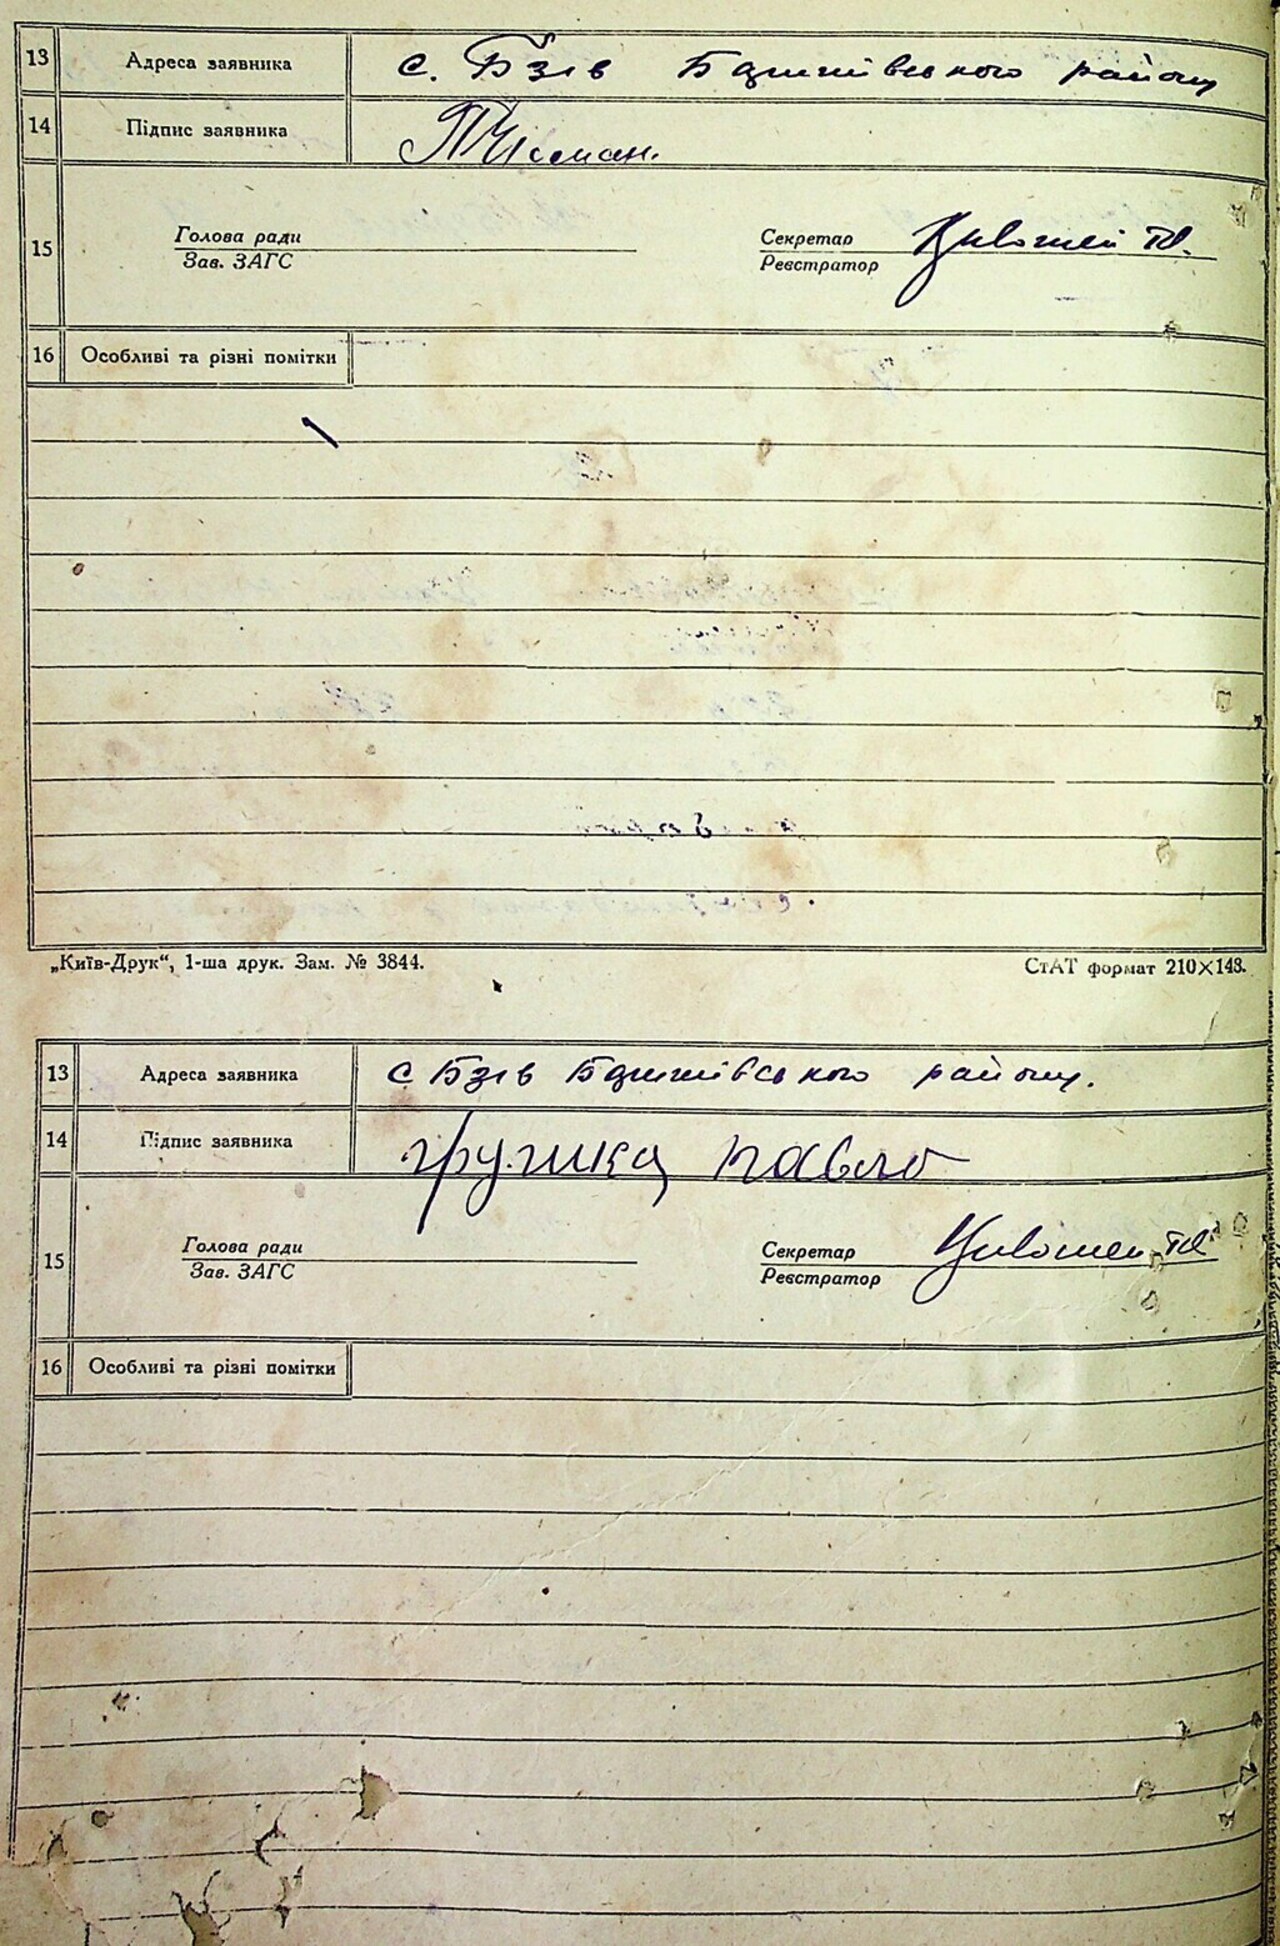 13 Адреса заявника с. Бзів Баришівського району
14 Підпис заявника
15 Голова ради Секретар
Зав. ЗАГС Реєстратор
16 Особливі та різні помітки
„Київ-Друк“, 1-ша друк. Зам. № 3844. СтАТ формат 210×148.
13 Адреса заявника с Бзів Баришівського району.
14 Підпис заявника грушка павло
15 Голова ради Секретар
Зав. ЗАГС Реєстратор
16 Особливі та різні помітки